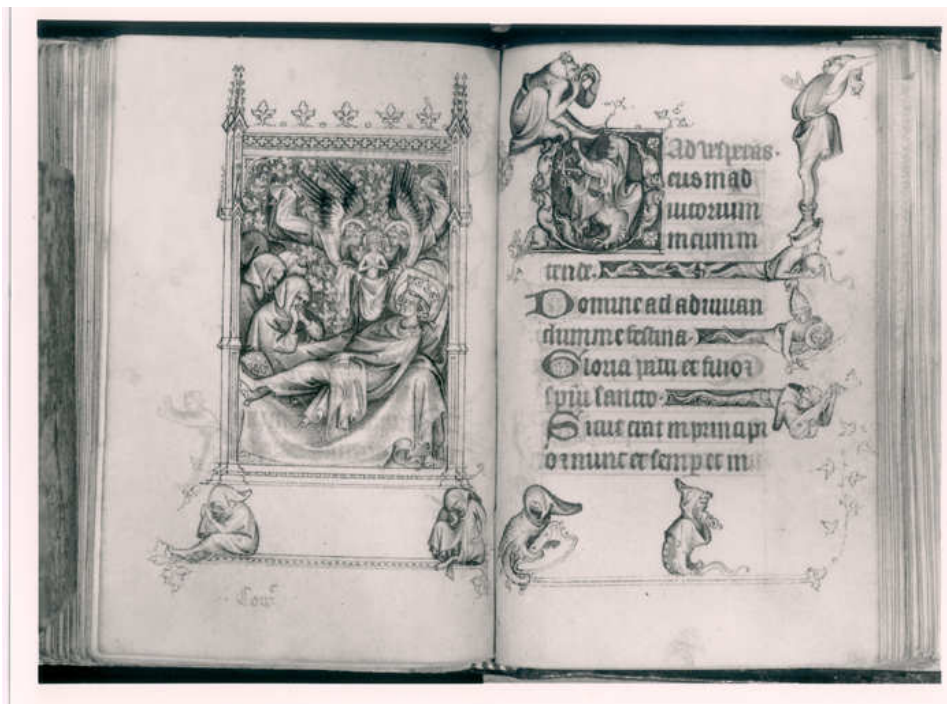 Ad vesperas.
Deus in ad
iutorium
meum in
tende.
Domine ad adiuuan
dum me festina.
Gloria patri et filio 
spiritui sancto.
Sicut erat in principi
o et nunc et semper et in